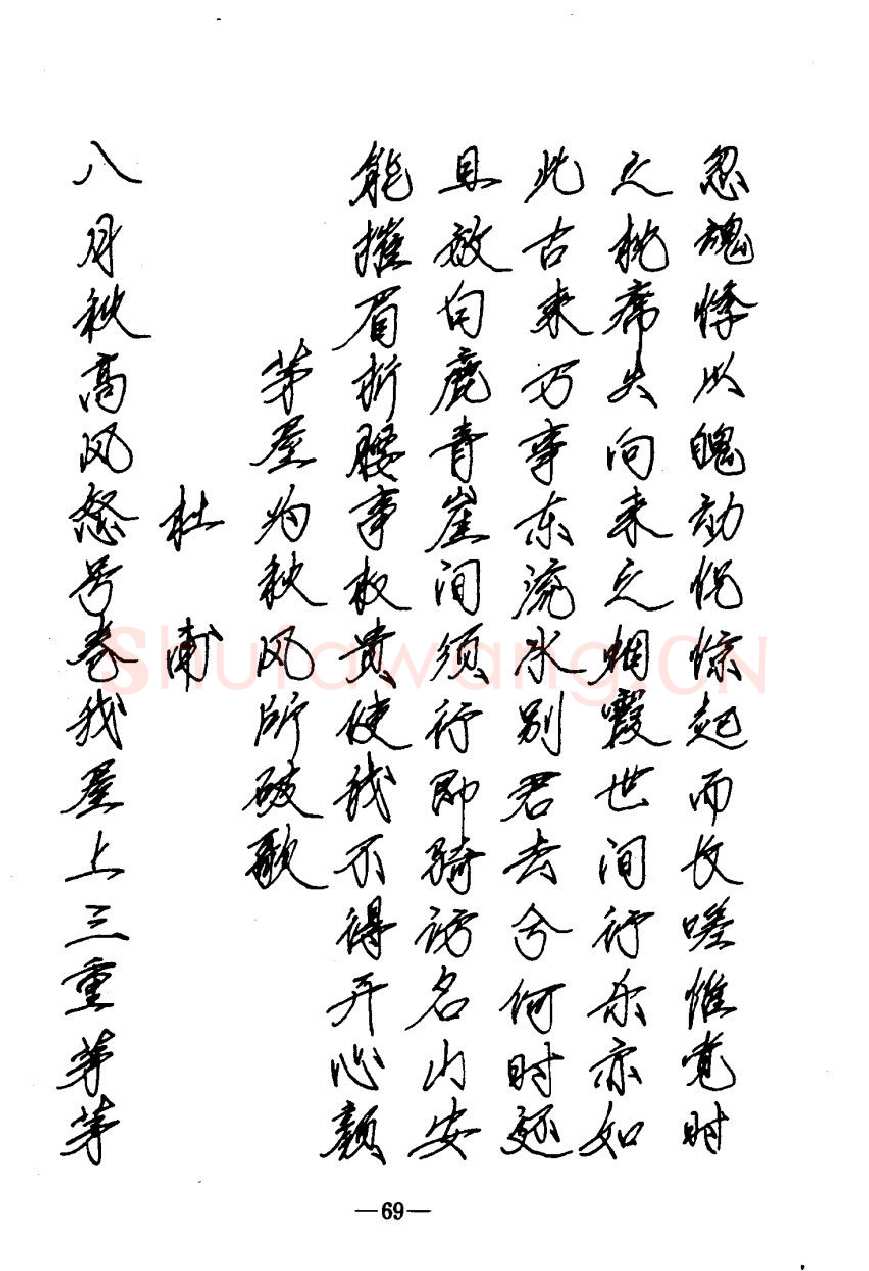 忽魂悸以魄动怳惊起而长嗟惟觉时
之枕席失向来之烟霞世间行乐亦如
此古来万事东流水别君去兮何时还
且放白鹿青崖间须行即骑访名山安
能摧眉折腰事权贵使我不得开心颜
茅屋为秋风所破歌
杜甫
八月秋高风怒号卷我屋上三重茅茅
shufawang.CN
—69—